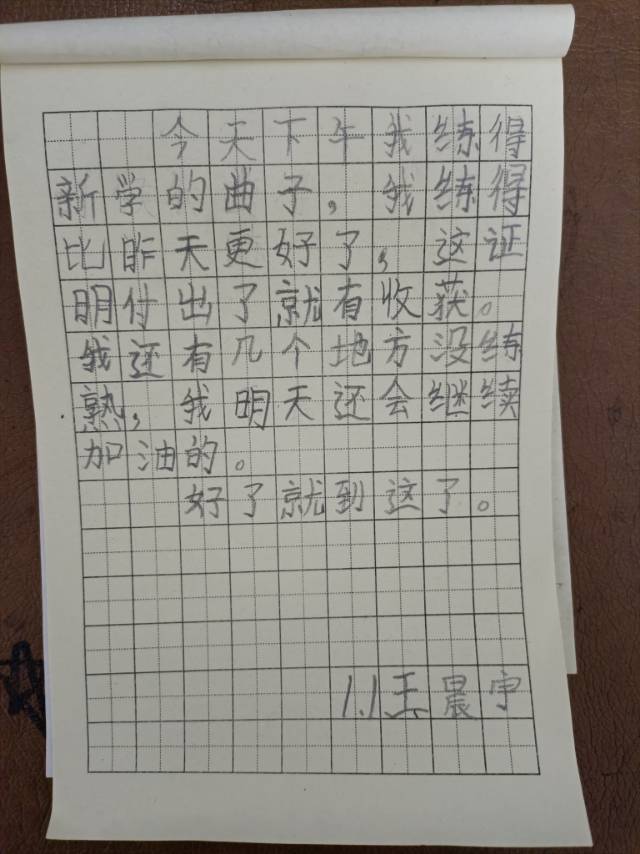 今天下午我练得
新学的曲子，我练得
比昨天更好了，这证
明付出了就有收获。
我还有几个地方没练
熟，我明天还会继续
加油的。
好了就到这了。
1.1王晨宇